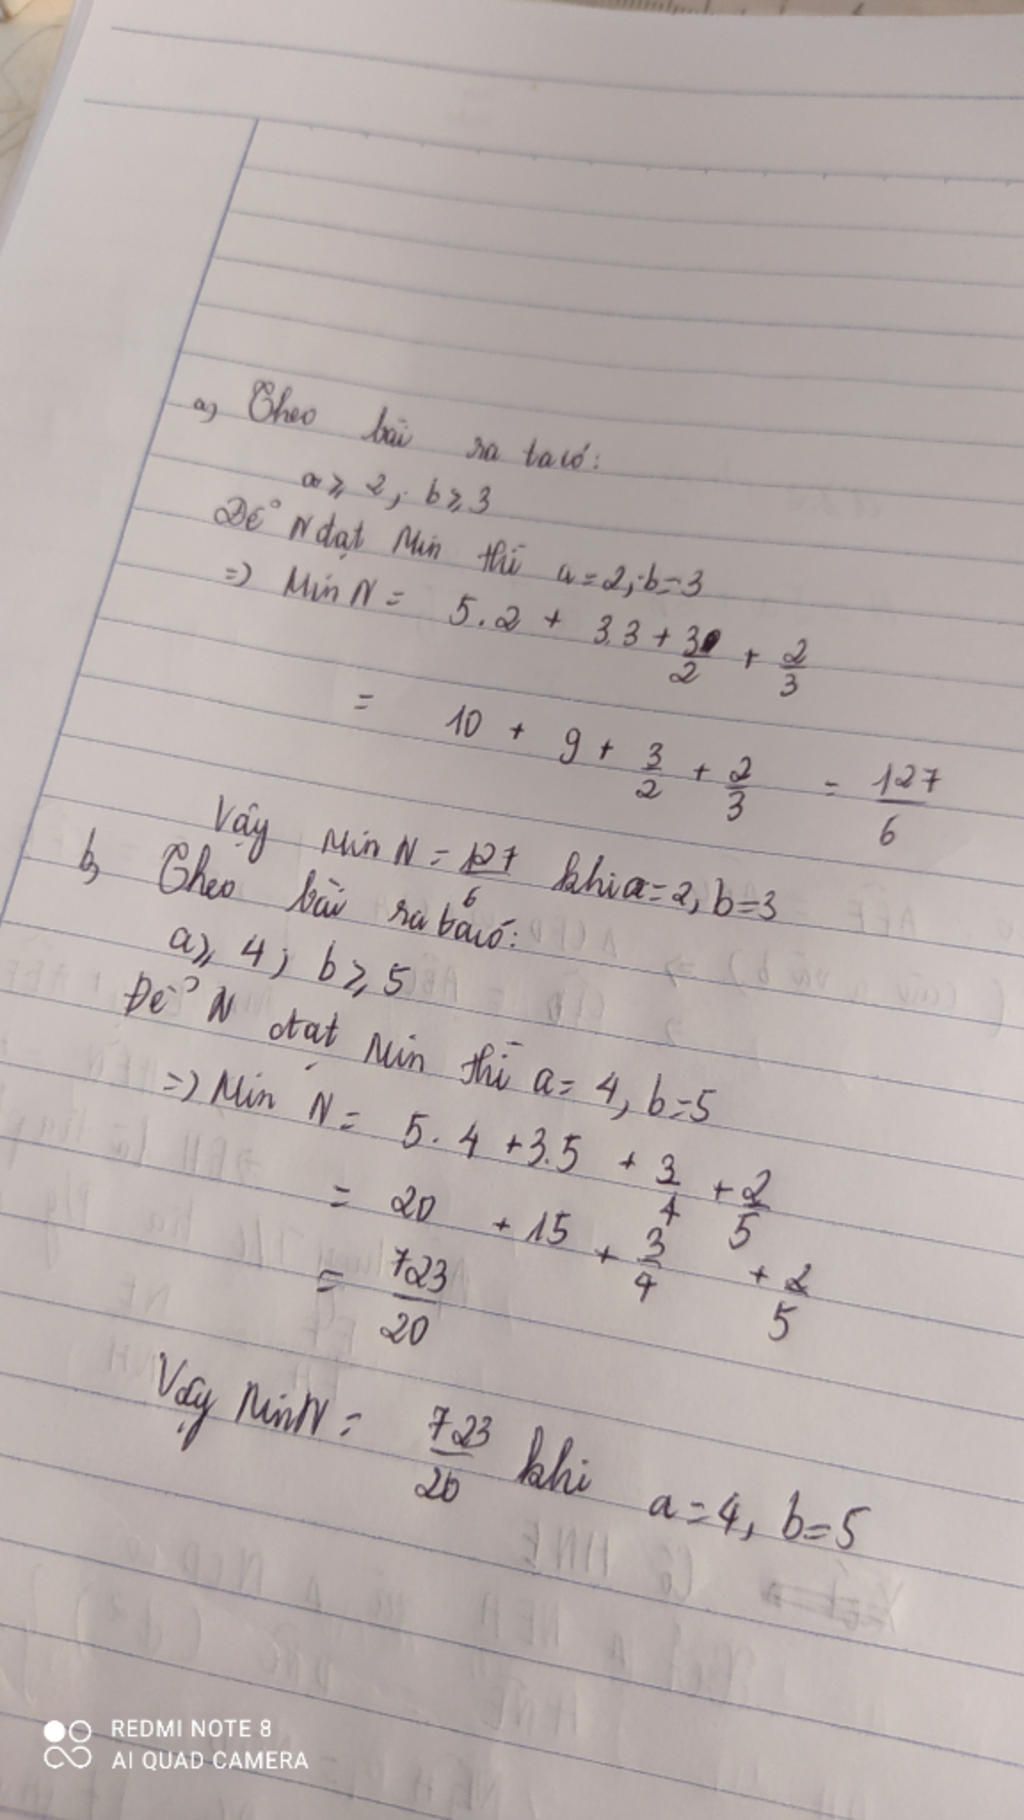 a, Theo bài ra ta có:
a ≥ 2; b ≥ 3
Để N đạt Min thì a = 2; b = 3
=> Min N = 5.2 + 3.3 + 3/2 + 2/3
= 10 + 9 + 3/2 + 2/3 = 127/6
Vậy Min N = 127/6 khi a = 2, b = 3
b, Theo bài ra ta có:
a ≥ 4; b ≥ 5
Để N đạt Min thì a = 4, b = 5
=> Min N = 5.4 + 3.5 + 3/4 + 2/5
= 20 + 15 + 3/4 + 2/5
= 723/20
Vậy Min N = 723/20 khi a = 4, b = 5
REDMI NOTE 8
AI QUAD CAMERA